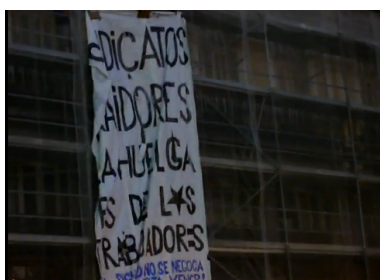 DICATOS
AIDORES
A HUELGA
ES DE L★S
TRABAJADORES
NO SE NEGOCIA